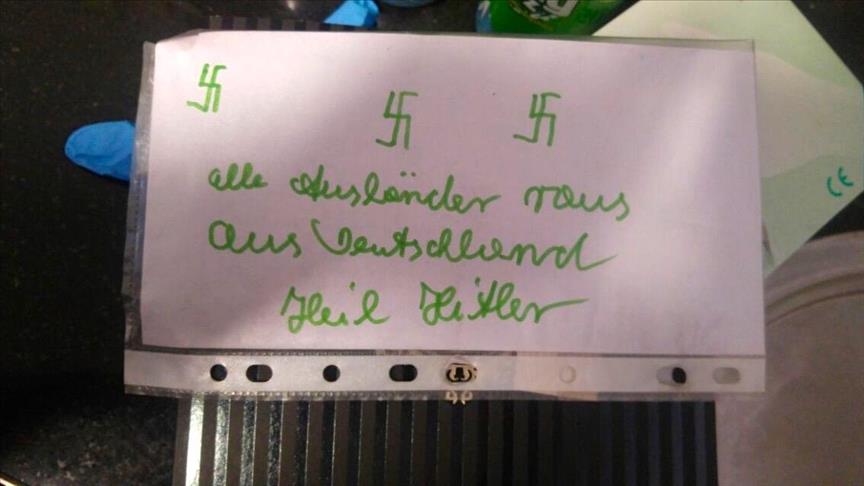 卐 卐 卐
alle Ausländer raus
aus Deutschland
Heil Hitler
CE